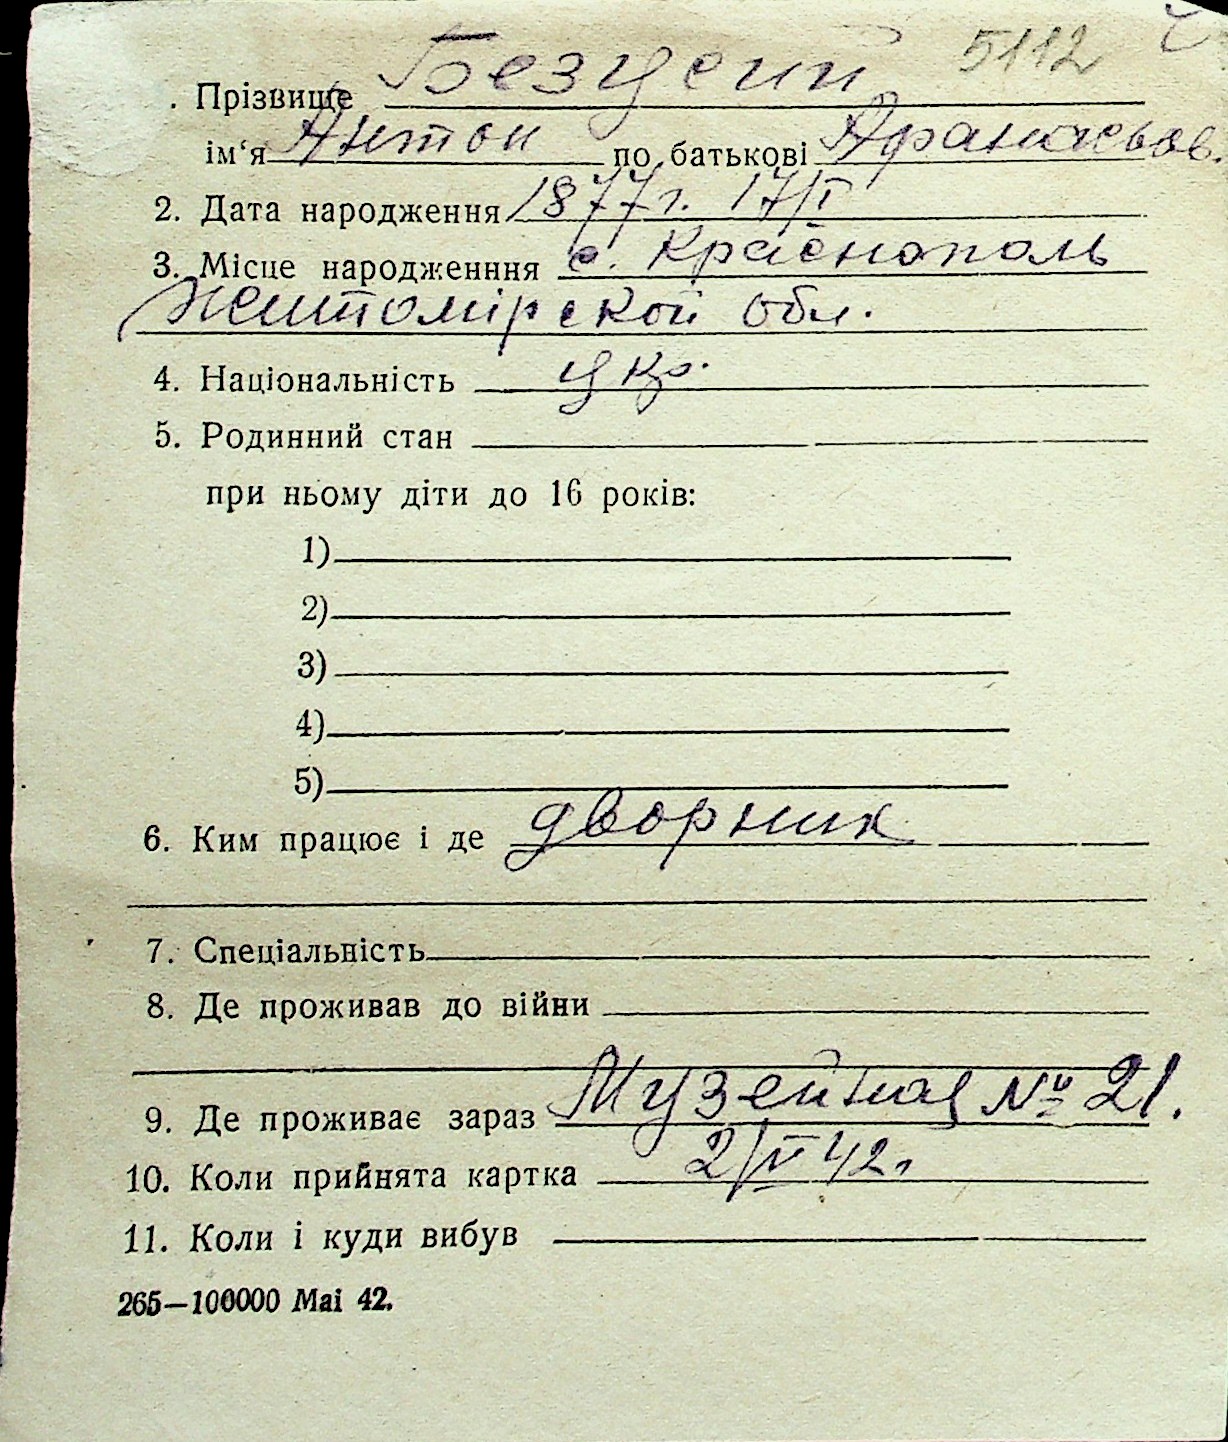 5112
. Прізвище Безусий
ім‘я Антон по батькові Афанасьев.
2. Дата народження 1877 г. 17/I
3. Місце народженння с. Краснополь
Житомірской обл.
4. Національність укр.
5. Родинний стан
при ньому діти до 16 років:
1)
2)
3)
4)
5)
6. Ким працює і де дворник
7. Спеціальність
8. Де проживав до війни
9. Де проживає зараз Музейная № 21.
10. Коли прийнята картка 2/VI 42 г
11. Коли і куди вибув
265—100000 Маі 42.